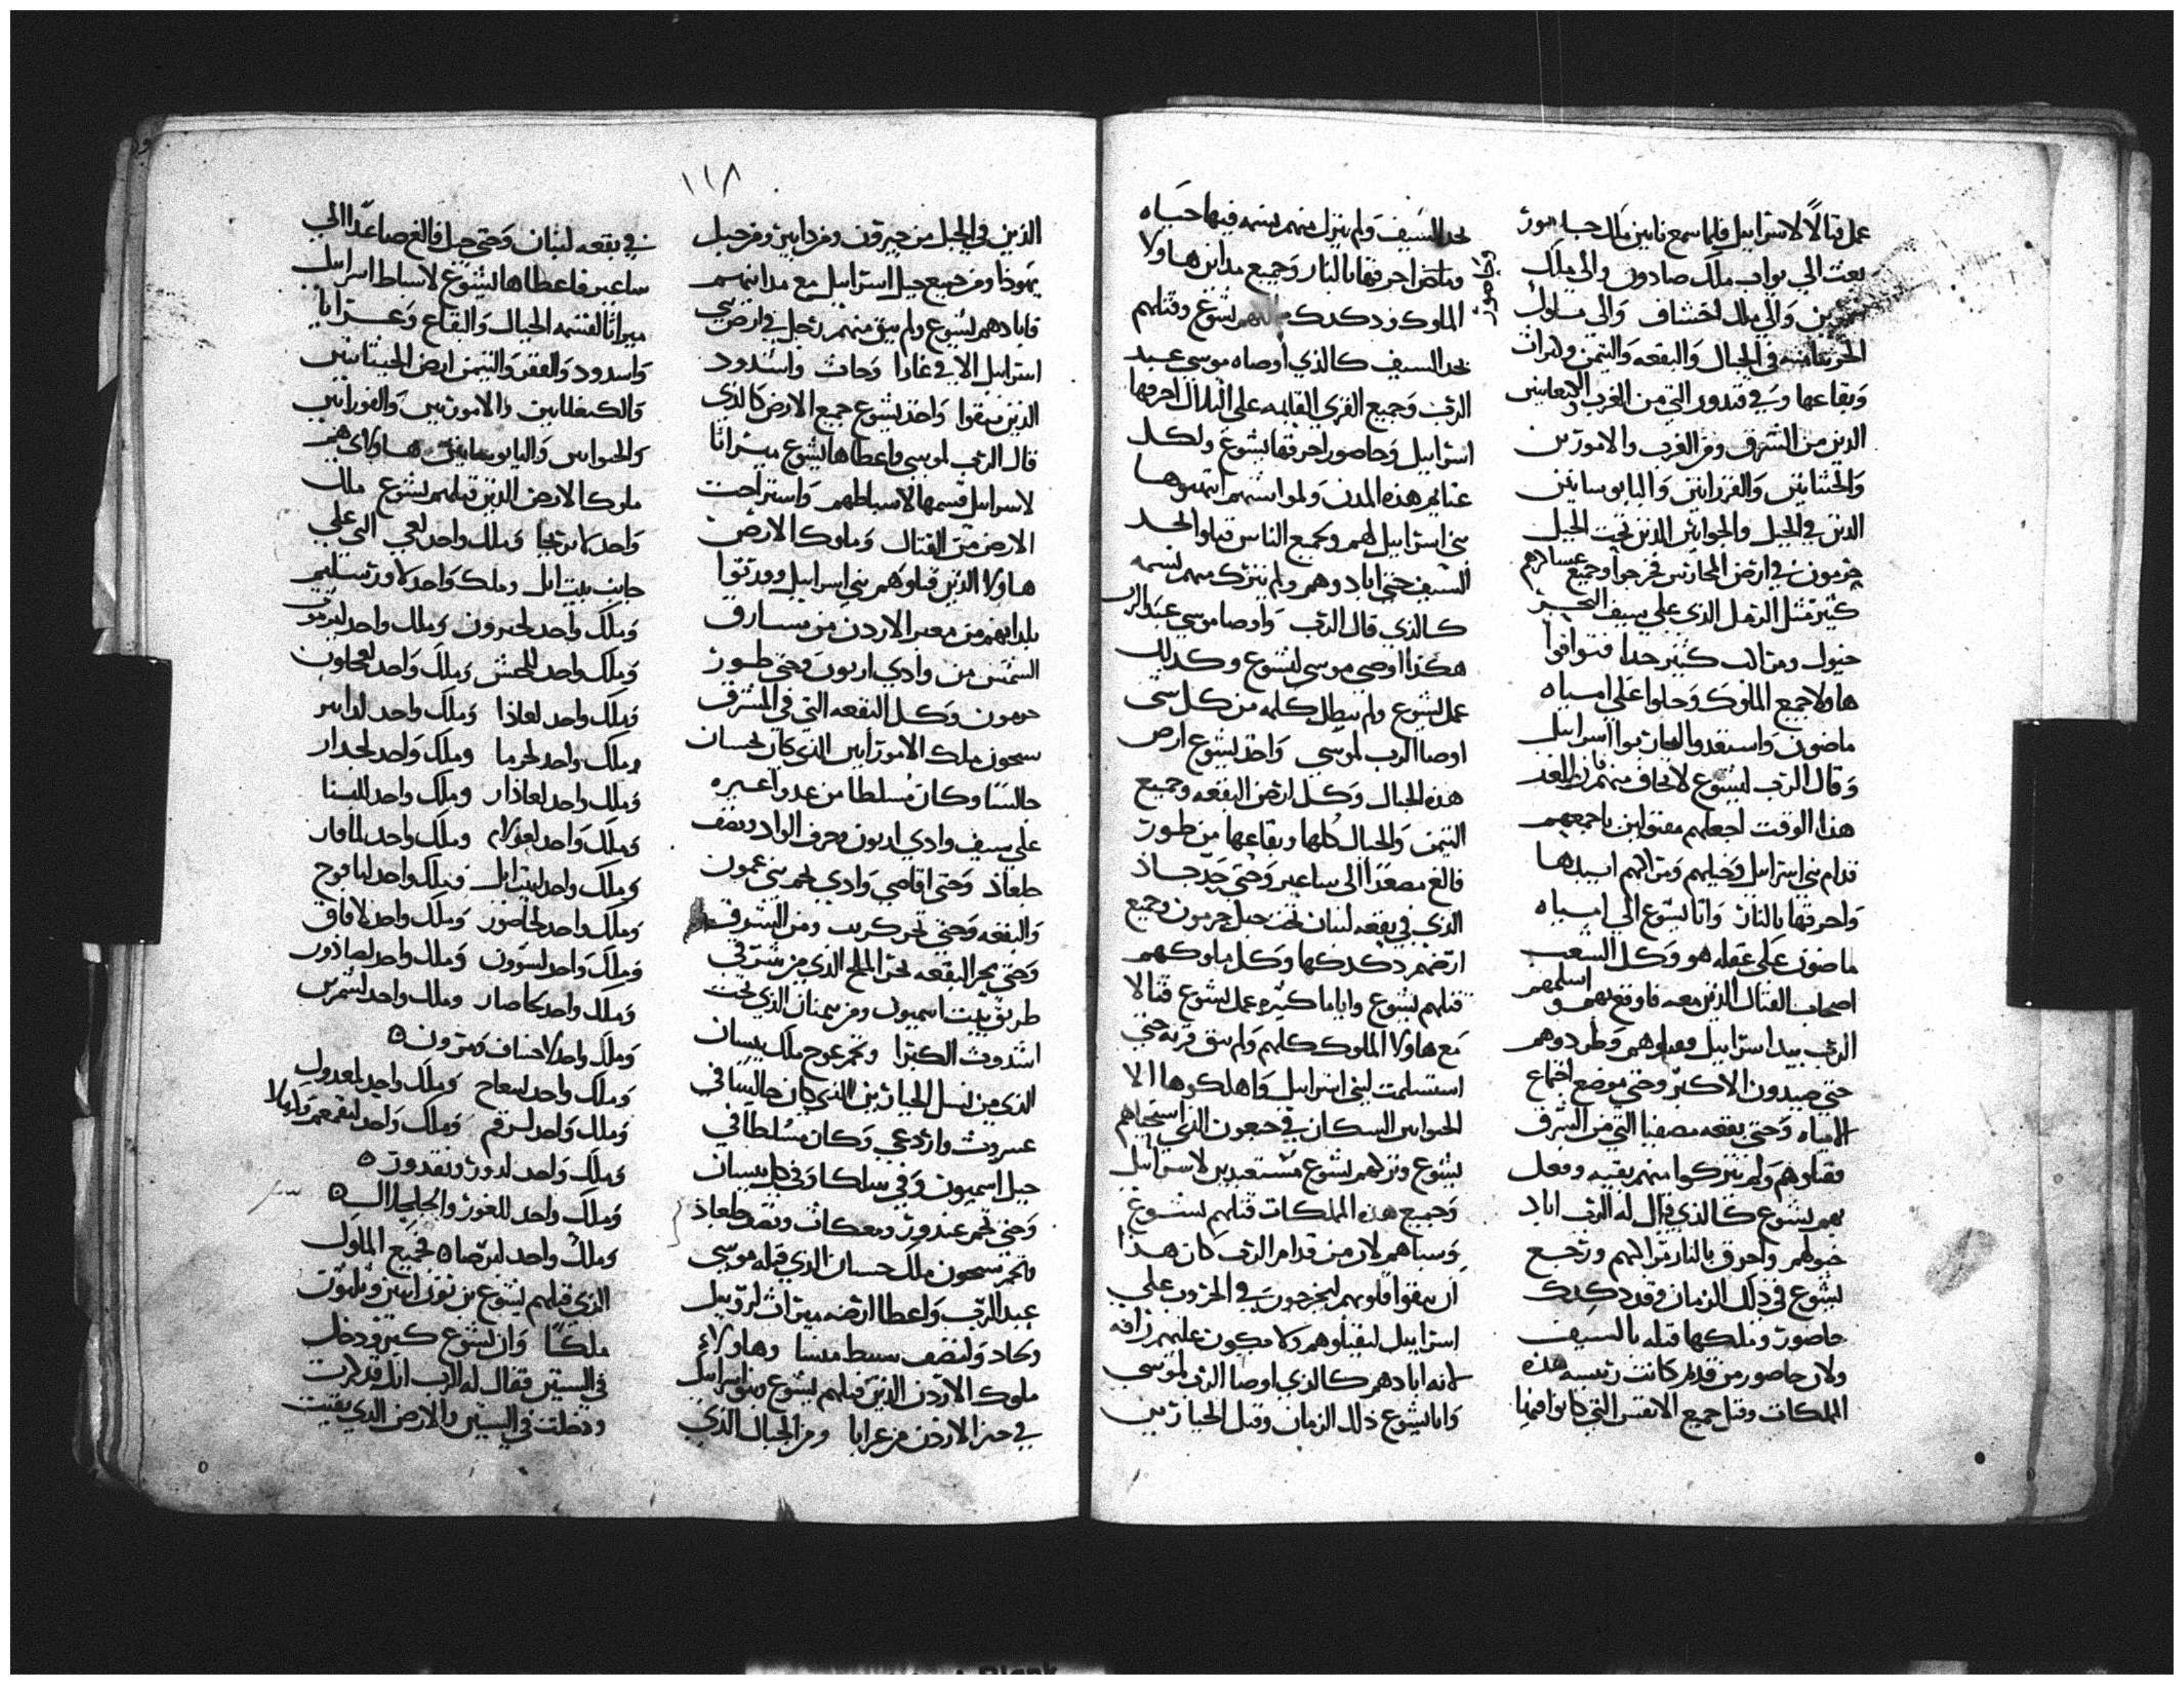 عمل قتالا لاسراييل فلما سمع نابين ملك حاصور
بعث الي يواب ملك صادون والي ملك
سمرين والي ملك اخشاف والي ملوك
في الجبال والبقعه والتيمن
وبقاعها وفي فندور التي من الغرب
الدين من الشرق ومن الغرب والامورين
والحتتانين والفرزانين واليابوسانين
الدين في الجبل والحوانين الدين تحت الجبل
حرمون في ارض فخرجوا وجميع عساكرهم
كثير مثل الرمل الذي علي سيف البحر
خيول ومراكب كثير جدا فتوافوا
هاولا جميع الملوك وحلوا علي امياه
ماضون واستعدوا ليحاربوا اسراييل
وقال الرب ليشوع لا تخاف منهم الغد
هذا الوقت اجعلهم مقتولين باجمعهم
قدام بني اسراييل وخيلهم ومراكبهم ابيدها
واحرقها بالنار واتا يشوع الي امياه
ماضون علي غفله هو وكل الشعب
اصحاب القتال الذين معه فاوقع بهم اسلمهم
الرب بيد اسراييل وقتلوهم وطردوهم
حتي صيدون الاكبر وحتي موضع اجماع
الامياه وحتي بقعه مصفيا التي من الشرق
فقتلوهم ولم يتركوا منهم بقيه وفعل
بهم يشوع كالذي قال له الرب اباد
خيولهم واحرق بالنار مراكبهم ورجع
يشوع في ذلك الزمان وقد دكدك
حاصور وملكها قتله بالسيف
ولان حاصور من قديم كانت رئيسه هذه
المملكات وقتل جميع الانفس التي كانوا فيها
بحد السيف ولم يترك منهم نسمه فيها حياه
احرقها بالنار وجميع مداين هاولا
الملوك ودكدك يشوع وقتلهم
بحد السيف كالذي اوصاه موسي عبد
الرب وجميع القري القايمه علي التلال احرقها
اسراييل وحاصور احرقها يشوع ولكل
غنايم هذه المدن ومواشيهم انتهبوها
بني اسراييل لهم وجميع الناس قتلوا بحد
السيف حتي ابادوهم ولم يتركـ منهم نسمه
كالذي قال الرب واوصا موسي عبد الرب
هكذا اوصي موسي ليشوع وكذلك
عمل يشوع ولم يبطل كلمه من كل شي
اوصا الرب لموسي واخذ يشوع ارض
هذه الجبال وكل ارض البقعه وجميع
التيمن والجبال كلها وبقاعها من طور
فالغ مصعدا الي ساعير وحتي حد جاذ
الذي في بقعه لبنان تحت جبل حرمون وجميع
ارضهم دكدكها وكل ملوكهم
قتلهم يشوع واياما كثيره عمل يشوع قتالا
مع هاولا الملوك كلهم ولم تبق قريه حتي
استسلمت لبني اسراييل واهلكوها الا
الحوانين السكان في جبعون الذي استحياهم
يشوع وتركهم يشوع مستعبدين لاسراييل
وجميع هذه المملكات قتلهم يشوع
وسباهم لان من قدام الرب كان هذا
ان يبقوا قلوبهم ليخرجون في الحروب علي
اسراييل ليقتلوهم ولا يكون عليهم رافه
لانه ابادهم كالذي اوصا الرب لموسي
واتا يشوع ذلك الزمان وقتل الجبارين
١١٨
الذين في الجبل من حبرون ومن دابير ومن جبل
يهوذا ومن جميع جبل اسراييل مع مداينهم
فابادهم يشوع ولم يبق منهم رجل في ارض بني
اسراييل الا في غازا وجاث واشدود
الذين بقوا واخذ يشوع جميع الارض كالذي
قال الرب لموسي واعطاها يشوع ميراثا
لاسراييل قسمها لاسباطهم واستراحت
الارض من القتال وملوك الارض
هاولا الذين قتلوهم بني اسراييل وورثوا
بلدانهم من معبر الاردن من مشارق
الشمس من وادي ارنون وحتي طور
حرمون وكل البقعه التي في المشرق
سيحون ملك الامورانين الذي كان بحسبان
جالسا وكان مسلطا من عدواعير
علي سيف وادي ارنون وحرف الواد ونصف
جلعاذ وحتي اقاصي وادي تخم بني عمون
والبقعه وحتي بحر كريت ومن المشرق
وحتي بحر البقعه بحر الملح الذي من شرقي
طريق بيت اسيمون ومن تيمنان الذي تحت
اشدوث الكبرا وتخم عوج ملك بيسان
الذي من نسل الجبارين الذي كان جالسا في
عسروث واردعي وكان مسلطا في
جبل اسميون وفي سلكا وفي كل بيسان
وحتي تخم عندور ومعكاث ونصف جلعاذ
وتخم سيحون ملك حسبان الذي قتله موسي
عبد الرب واعطا ارضه ميراث لروبيل
وكاد ولنصف سبط منسا وهاولاء
ملوك الاردن الذين قتلهم يشوع وبني اسراييل
في حيز الاردن من عرابا ومن الجبال الذي
في بقعه لبنان وحتي جبل فالغ صاعدا الي
ساعير فاعطاها يشوع لاسباط اسراييل
ميراثا لقسمه الجبال والقاع وعرابا
واسدود والقفر والتيمن ارض الحيثانين
والكنعانين والامورنين والفرزانين
والحوانين واليابوسانين هاولاي هم
ملوك الارض الذين قتلهم يشوع ملك
واحد لاريحا وملك واحد لعي التي علي
جانب بيت ايل وملك واحد لاورشليم
وملك واحد لحبرون وملك واحد ليرموت
وملك واحد للحيش وملك واحد لعجلون
وملك واحد لعاذا وملك واحد لدابير
وملك واحد لحرما وملك واحد لجدار
وملك واحد لعاذار وملك واحد للبنا
وملك واحد لعولام وملك واحد لماقار
وملك واحد لبيت ايل وملك واحد ليافوح
وملك واحد لحاصور وملك واحد لافاق
وملك واحد لسوون وملك واحد لصاذور
وملك واحد لحاصار وملك واحد لشمرين
وملك واحد لاخساف ومرون
وملك واحد لمعاح وملك واحد لمعدول
وملك واحد لرقم وملك واحد
وملك واحد لدور ونفدور
وملك واحد للغور والجلجال
وملك واحد لترصاه فجميع الملوك
الذي قتلهم يشوع بن نون اثنين وثلاثون
ملكا وان يشوع كبر ودخل
في السنين فقال له الرب انك قد كبرت
ودخلت في السنين والارض الذي بقيت